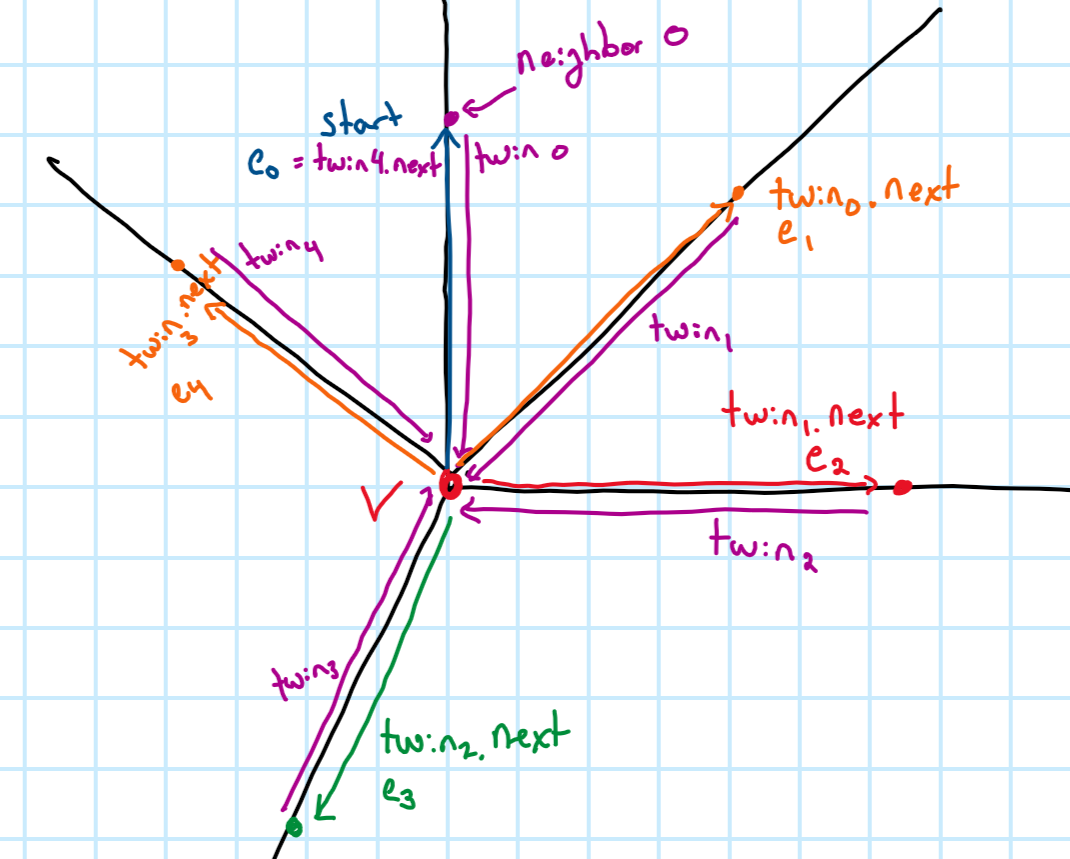 neighbor 0
start
e₀ = twin4.next
twin 0
twin₀.next
e₁
twin₄
twin₃.next
e4
twin₁
twin₁.next
e₂
V
twin₂
twin₃
twin₂.next
e₃